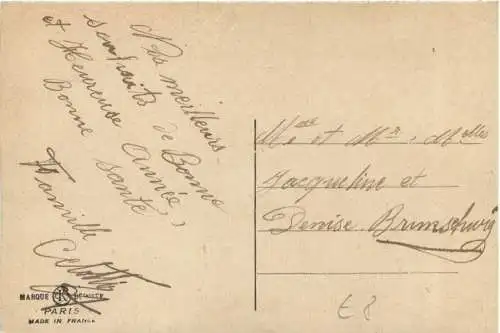 Nos meilleurs
souhaits de Bonne
et Heureuse année,
Bonne santé,
Famille
Mme et Mr, Melles
Jacqueline et
Denise Brunschwig
MARQUE DÉPOSÉE
PARIS
MADE IN FRANCE
E8